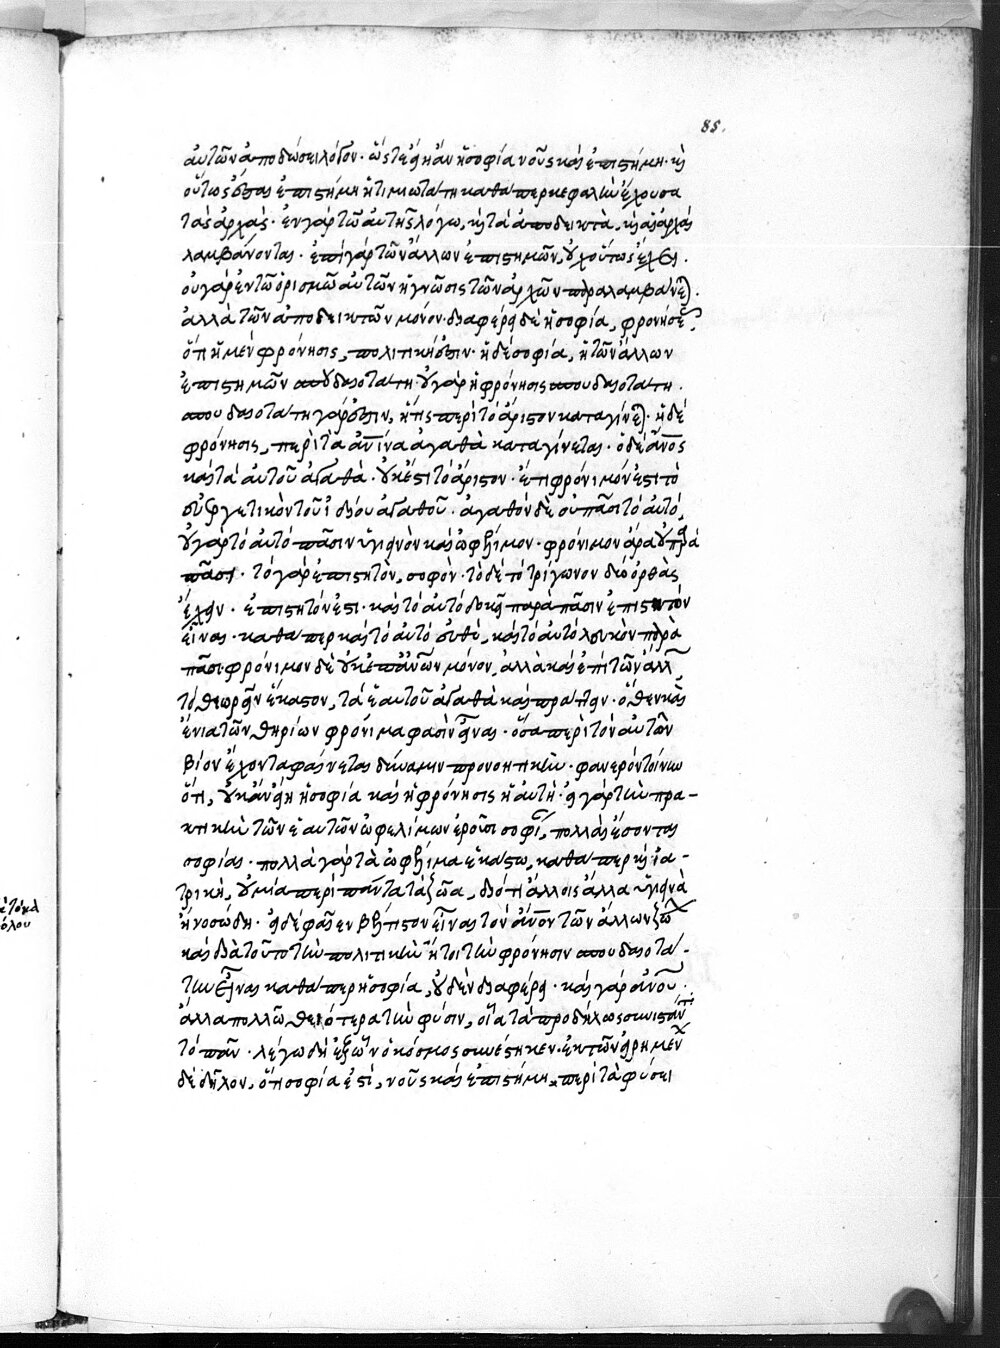 85.
αὐτῶν ἀποδώσει λόγον. ὥστε εἴη ἂν ἡ σοφία νοῦς καὶ ἐπιστήμη. καὶ
οὕτως ἔσται ἐπιστήμη ἡ τιμιωτάτη καθάπερ κεφαλὴν ἔχουσα
τὰς ἀρχάς. ἐν γὰρ τῶ αὐτῆς λόγω, καὶ τὰ ἀποδεικτὰ, καὶ αἱ ἀρχαὶ
λαμβάνονται. ἐπὶ γὰρ τῶν ἄλλων ἐπιστημῶν, οὐχ οὕτως ἔχει.
οὐ γὰρ ἐν τῶ ὁρισμῶ αὐτῶν ἡ γνῶσις τῶν ἀρχῶν παραλαμβάνεται.
ἀλλὰ τῶν ἀποδεικτῶν μόνον. διαφέρει δὲ ἡ σοφία, φρονήσεως,
ὅτι ἡ μὲν φρόνησις, πολιτική ἐστιν. ἡ δὲ σοφία, ἡ τῶν ἄλλων
ἐπιστημῶν σπουδαιοτάτη. οὐ γὰρ ἡ φρόνησις σπουδαιοτάτη.
σπουδαιοτάτη γάρ ἐστιν, ἥτις περὶ τὸ ἄριστον καταγίνεται. ἡ δὲ
φρόνησις, περὶ τὰ ἀνθρώπινα ἀγαθὰ καταγίνεται. ὁ δὲ ἄνθρωπος
καὶ τὰ αὐτοῦ ἀγαθὰ. οὐκ ἔστι τὸ ἄριστον. ἔτι φρόνιμόν ἐστι τὸ
συνεργητικὸν τοῦ ἰδίου ἀγαθοῦ. ἀγαθὸν δὲ οὐ πᾶσι τὸ αὐτό,
οὐ γὰρ τὸ αὐτὸ πᾶσιν ὑγιεινὸν καὶ ὠφέλιμον. φρόνιμον ἄρα οὐ παρὰ
πᾶσι. τὸ γὰρ ἐπιστητὸν, σοφόν. τὸ δὲ τὸ τρίγωνον δύο ὀρθὰς
ἔχειν. ἐπιστητόν ἐστι. καὶ τὸ αὐτὸ δοκεῖ παρὰ πᾶσιν ἐπιστητὸν
εἶναι. καθάπερ καὶ τὸ αὐτὸ εὐθὺ, καὶ τὸ αὐτὸ λευκὸν παρὰ
πᾶσι φρόνιμον δὲ οὐκ ἐπ' ἀνθρώπων μόνον, ἀλλὰ καὶ ἐπὶ τῶν ἄλλων
τὸ θεωρεῖν ἕκαστον, τὰ ἑαυτοῦ ἀγαθὰ καὶ πράττειν. ὅθεν καὶ
ἔνια τῶν θηρίων φρόνιμα φασὶν εἶναι. ὅσα περὶ τὸν αὐτῶν
βίον ἔχοντα φαίνεται δύναμιν προνοητικήν. φανερὸν τοίνυν
ὅτι, οὐκ ἂν εἴη ἡ σοφία καὶ ἡ φρόνησις ἡ αὐτή. εἰ γὰρ τὴν πρα-
κτικὴν τῶν ἑαυτῶν ὠφελίμων ἐροῦσι σοφίαν, πολλαὶ ἔσονται
σοφίαι. πολλὰ γὰρ τὰ ὠφέλιμα ἑκάστω, καθάπερ καὶ ἰα-
τρικὴ, οὐ μία περὶ πάντα τὰ ζῶα, διότι ἄλλοις ἄλλα ὑγιεινὰ
ἢ νοσώδη. εἰ δὲ φαῖεν βέλτιστον εἶναι τὸν ἄνθρωπον τῶν ἄλλων ζώων
καὶ διὰ τοῦτο τὴν πολιτικὴν ἤτοι τὴν φρόνησιν σπουδαιοτά-
την εἶναι καθάπερ ἡ σοφία, οὐδὲν διαφέρει. καὶ γὰρ ἀνθρώπου.
ἄλλα πολλῶ θειότερα τὴν φύσιν, οἷα τὰ προδήλως συνιστάντα
τὸ πᾶν. λέγω δὴ ἐξ ὧν ὁ κόσμος συνέστηκεν. ἐκ τῶν εἰρημένων
δὲ δῆλον, ὅτι σοφία ἐστὶ, νοῦς καὶ ἐπιστήμη, περὶ τὰ φύσει